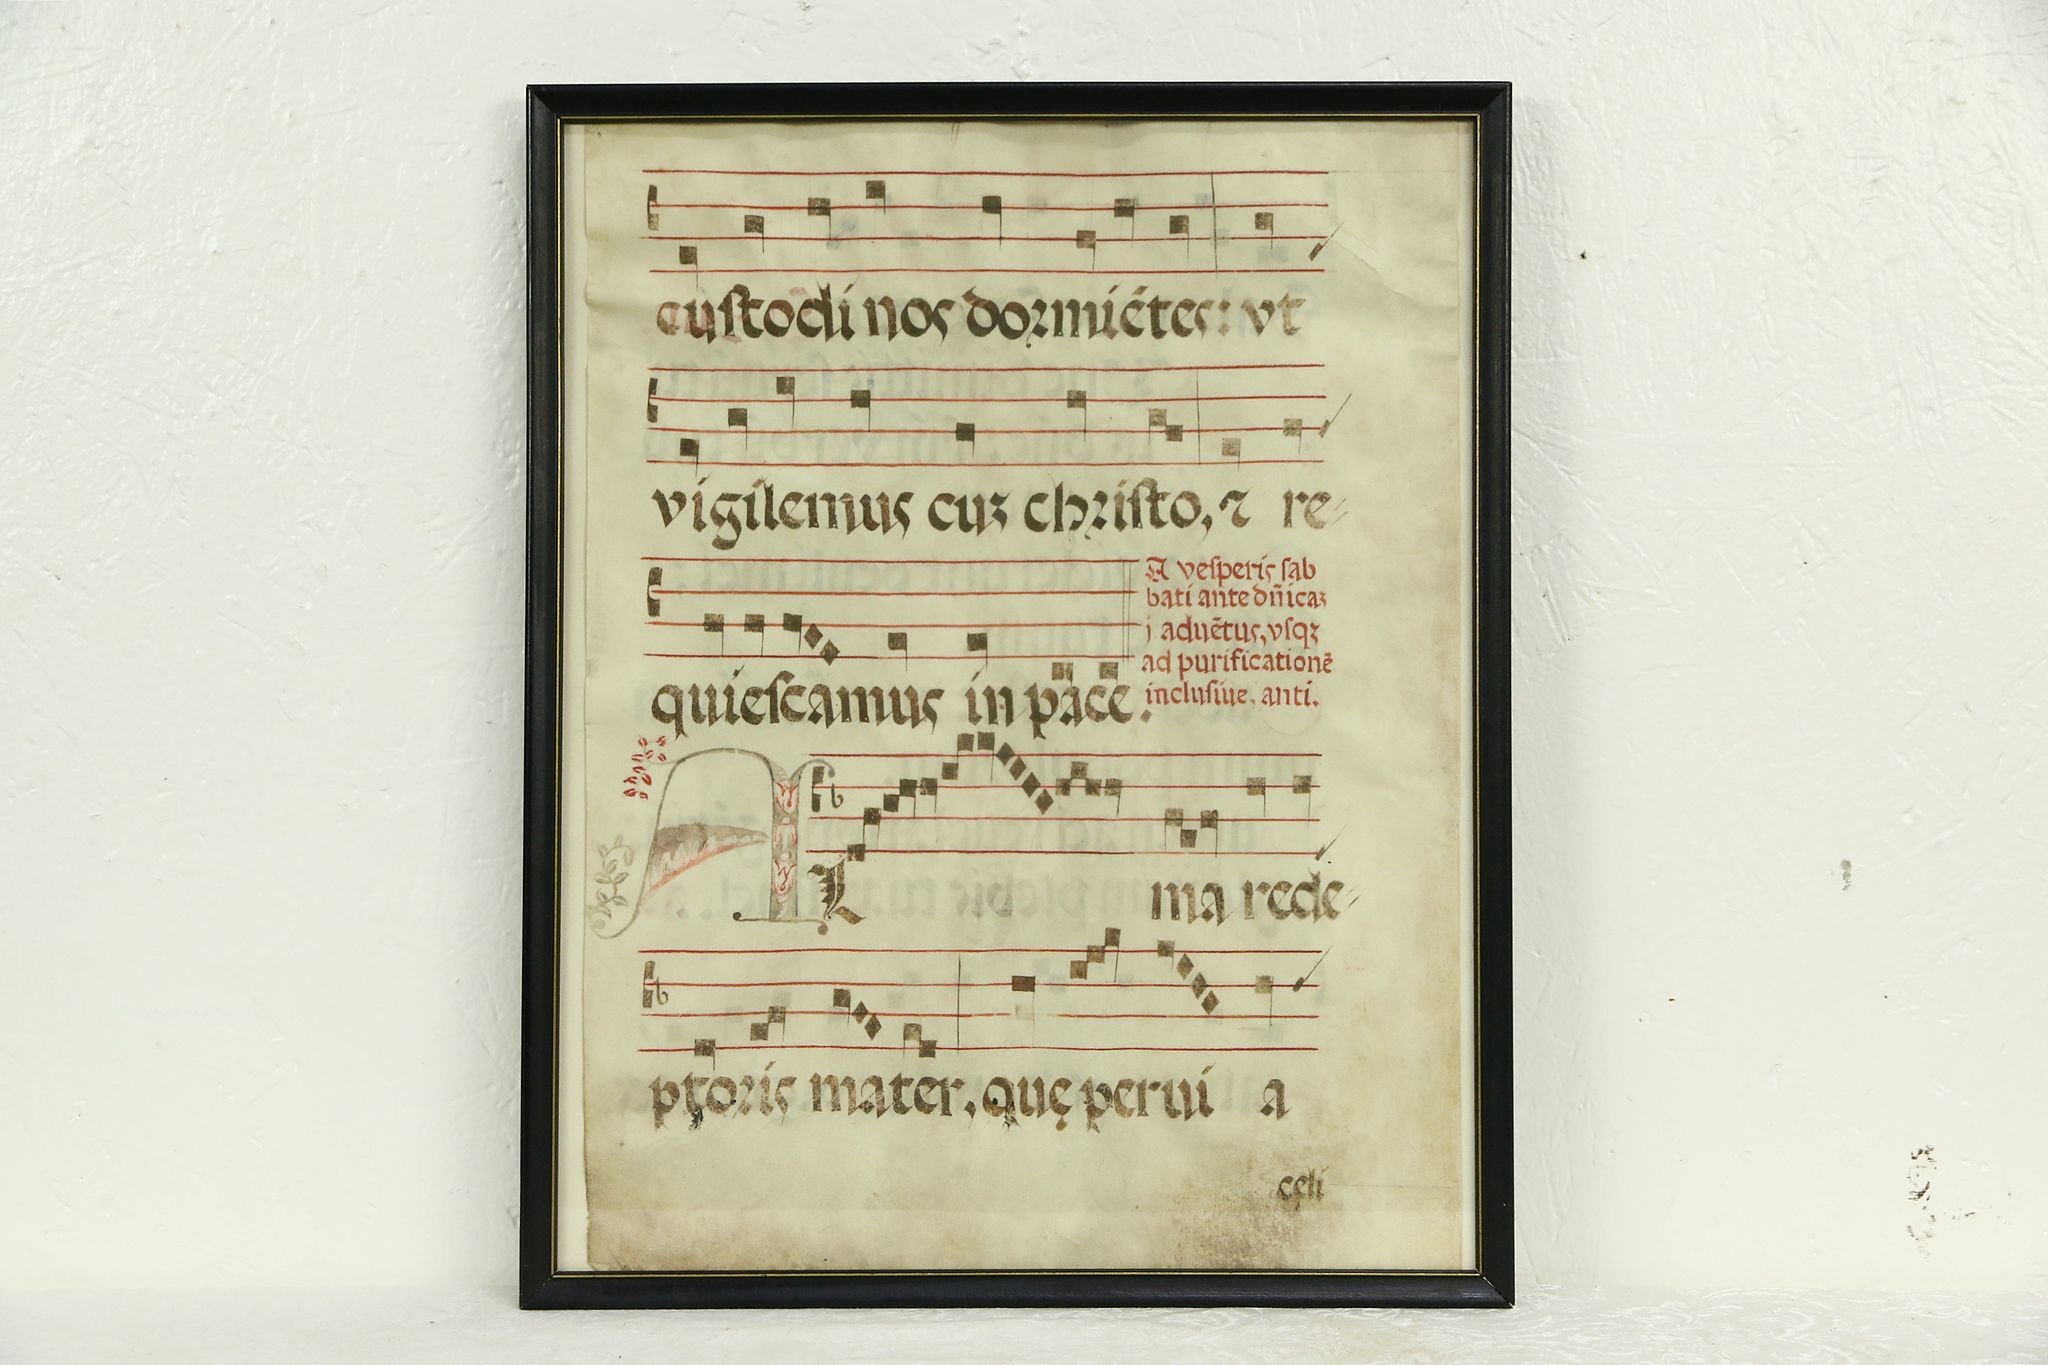 custodi nos dormiẽtes: vt
vigilemus cuꝫ christo, ⁊ re-
quiescamus in pace.
A vesperis sab
bati ante dñicaꝫ
j aduẽtus, vsqꝫ
ad purificationẽ
inclusiue. anti.
AL ma rede-
ptoris mater, quę perui a
cęli